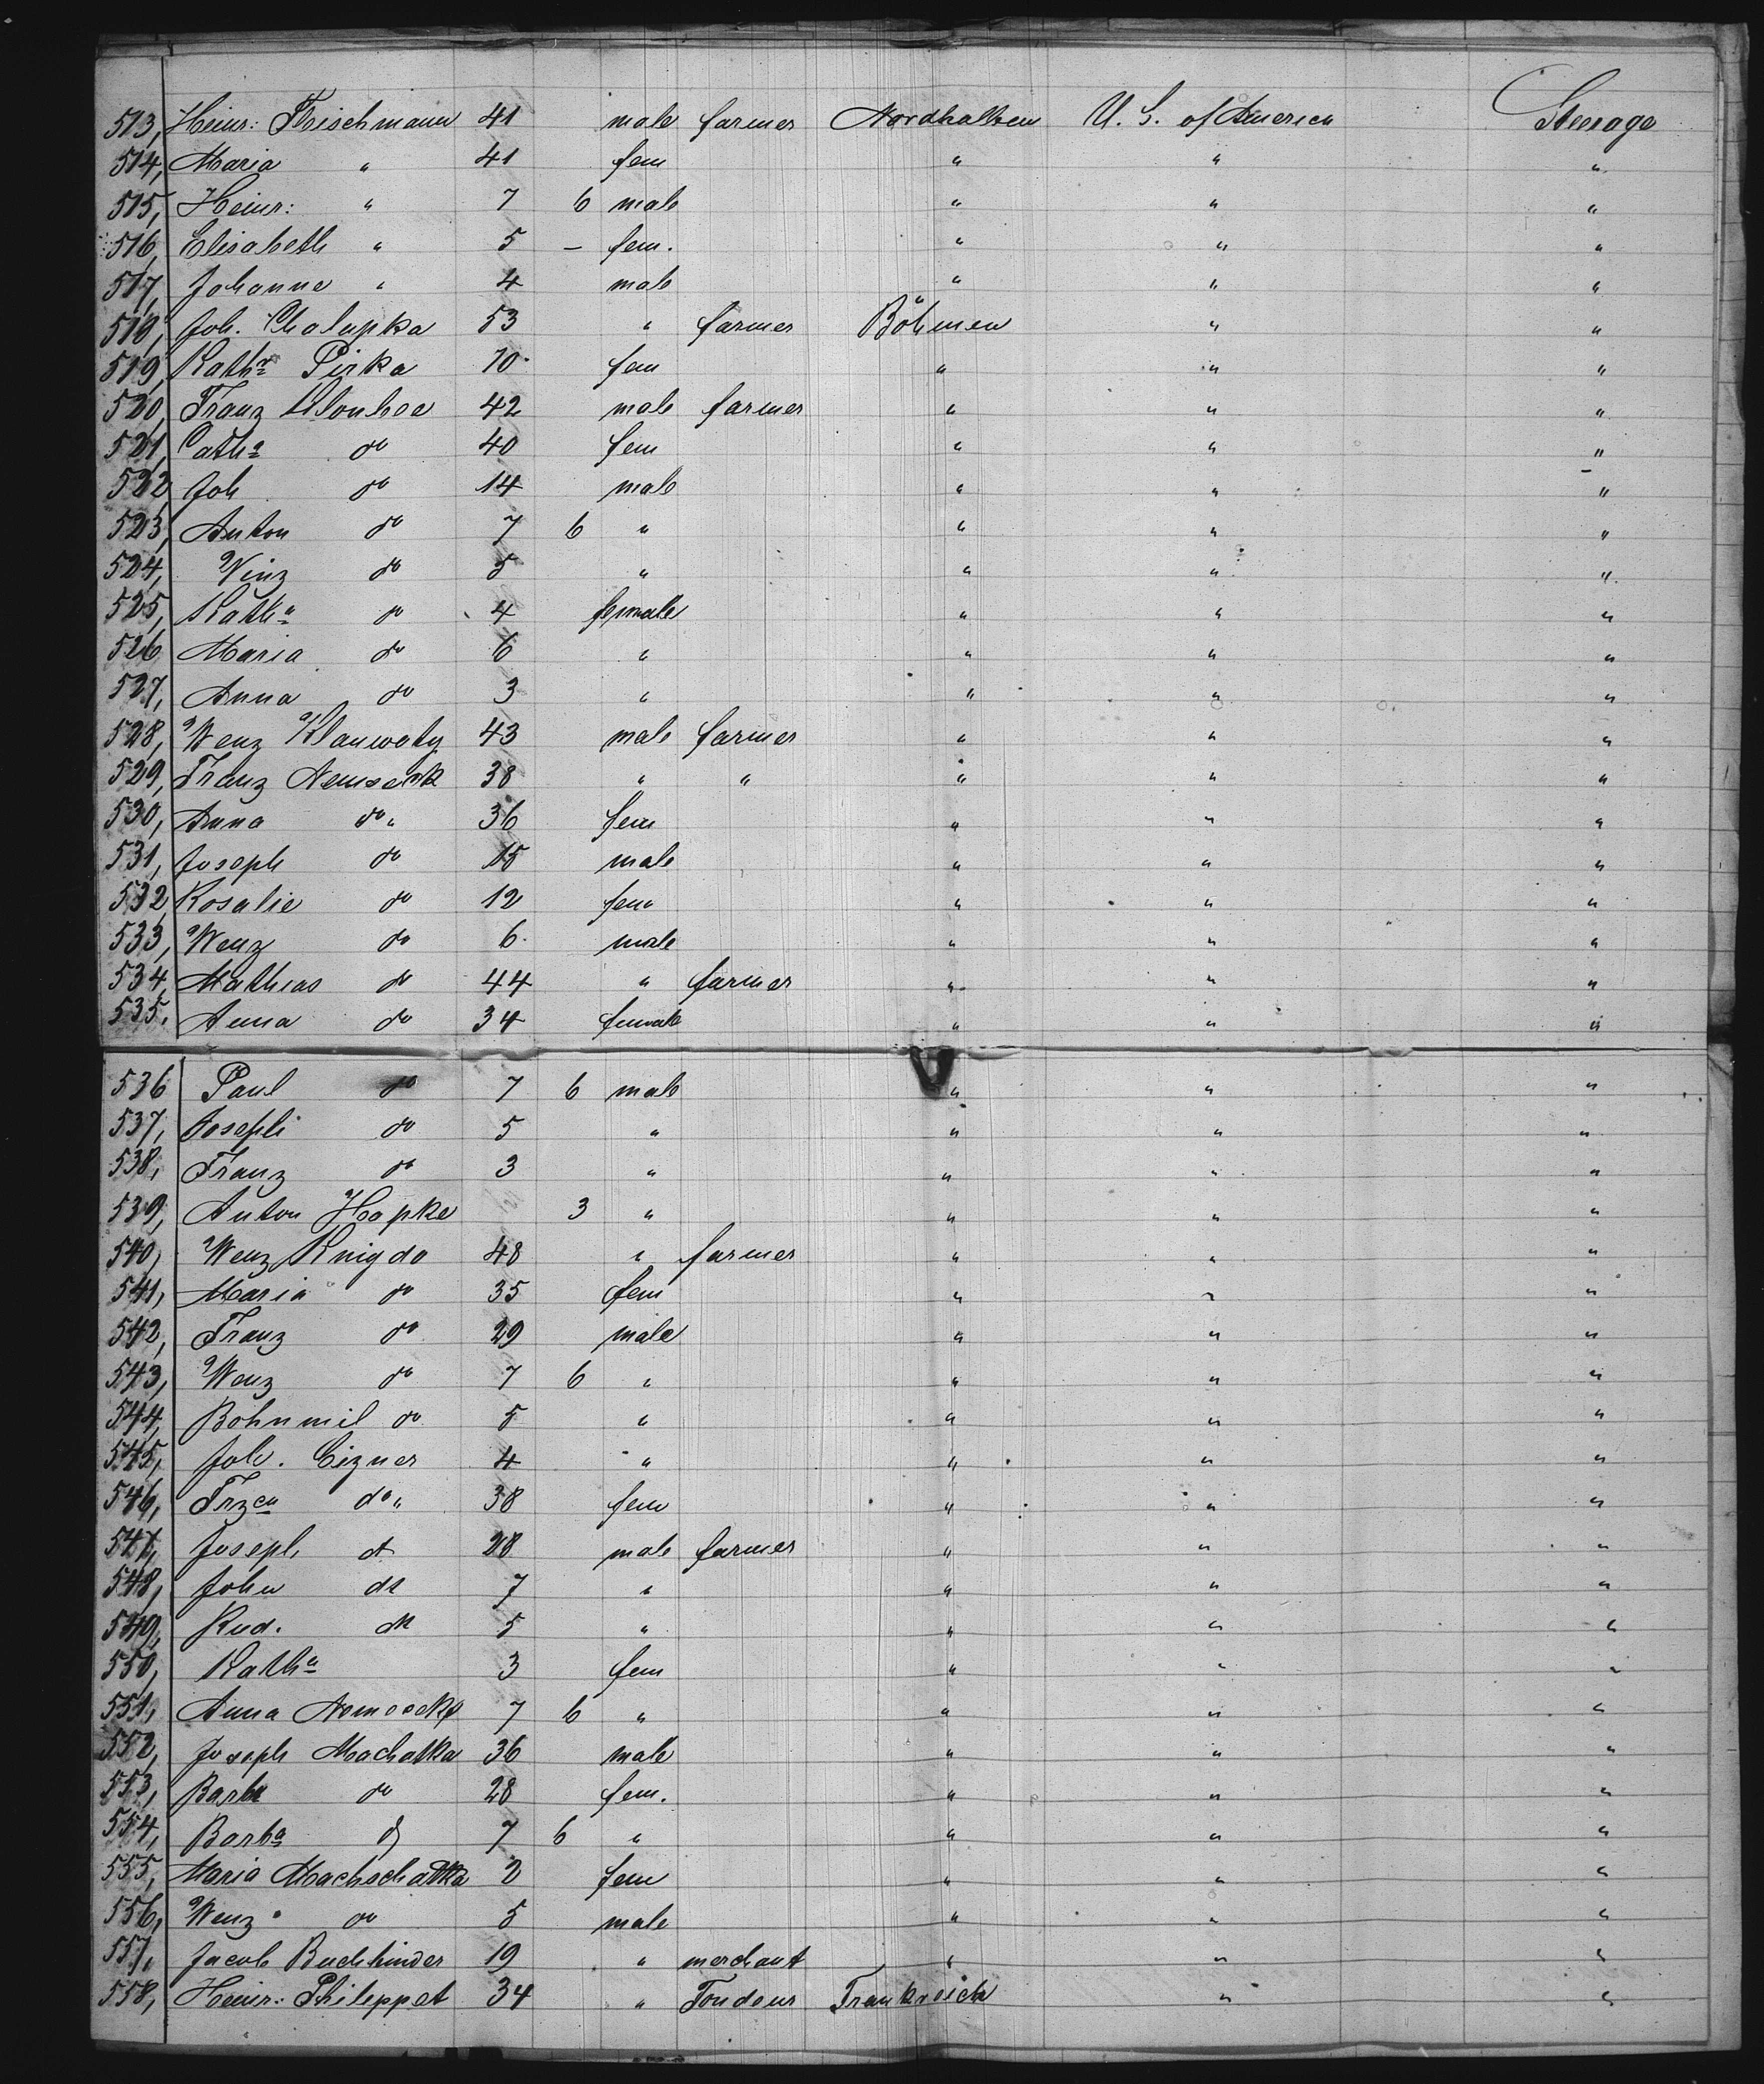 513, Heinr: Frischmann 41 male farmer Nordhalben U. S. of America Steerage
514, Maria " 41 fem " " "
515, Heinr: " 7 6 male " " "
516, Elisabeth " 5 – fem. " " "
517, Johanne " 4 male " " "
518, Joh. Chalupka 53 " farmer Böhmen " "
519, Katha Pirka 10 fem " " "
520, Franz 42 male farmer " " "
521, Catha do 40 fem " " "
522 Joh do 14 male " " "
523, Anton do 7 6 " " " "
524, Winz do 5 " " " "
525, Katha do 4 female " " "
526 Maria do 6 " " " "
527, Anna do 3 " " " "
528, Wenz Klauwaty 43 male farmer " " "
529, Franz Nemseck 38 " " " " "
530, Anna do " 36 fem " " "
531, Joseph do 15 male " " "
532 Rosalie do 12 fem " " "
533, Wenz do 6 male " " "
534, Mathias do 44 " farmer " " "
535, Anna do 34 female " " "
536 Paul do 7 6 male " " "
537, Joseph do 5 " " " "
538, Franz do 3 " " " "
539, Anton Hapke 3 " " " "
540, Wenz Knigdo 48 " farmer " " "
541, Maria do 35 fem " " "
542, Franz do 29 male " " "
543, Wenz do 7 6 " " " "
544, Bohnmil do 5 " " " "
545, Joh. Cizner 4 " " " "
546, Frzca do " 38 fem " " "
547, Joseph do 28 male farmer " " "
548, John do 7 " " " "
549, Rud. do 5 " " " "
550, Katha 3 fem " " "
551, Anna 7 6 " " " "
552, Joseph Machatka 36 male " " "
553, Barba do 28 fem. " " "
554, Barba do 7 6 " " " "
555, Maria Machschatka 2 fem " " "
556, Wenz do 5 male " " "
557, Jacob Buchbinder 19 " merchant " " "
558, Heinr: Phileppet 34 " Tondeur Frankreich " "